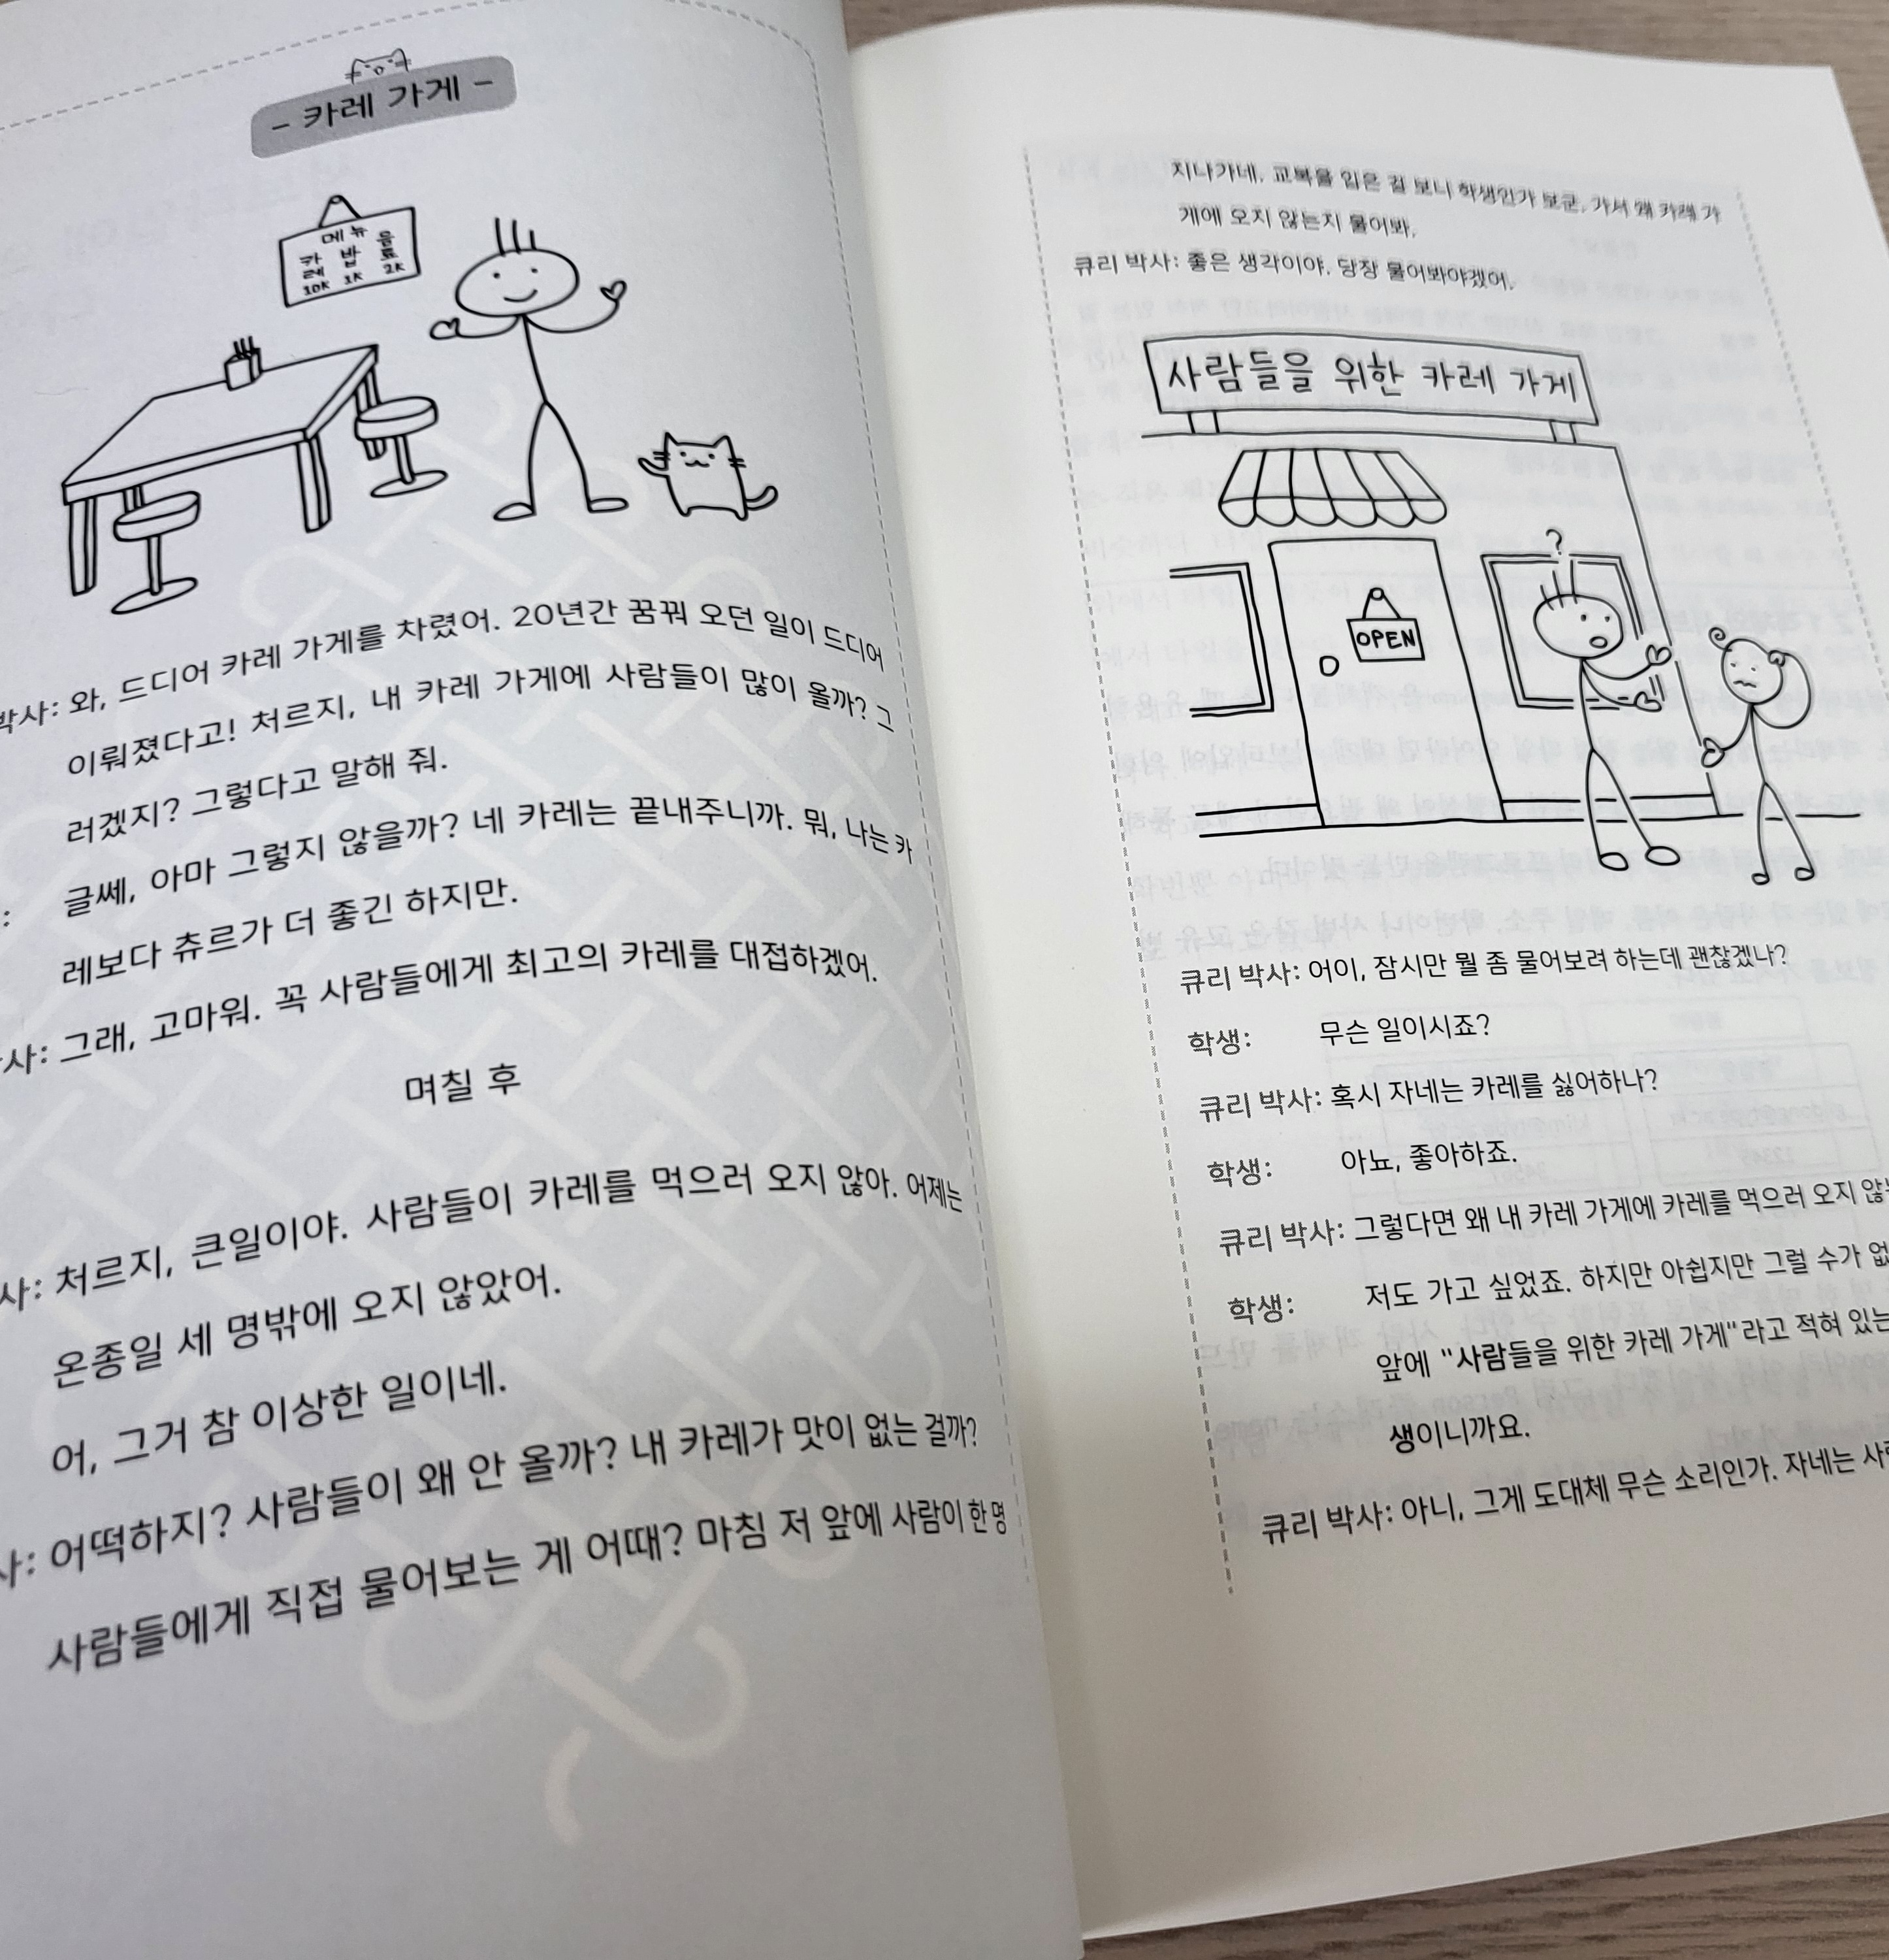 - 카레 가게 -
메뉴
카레 밥 음료
10K 1K 2K
박사: 와, 드디어 카레 가게를 차렸어. 20년간 꿈꿔 오던 일이 드디어
이뤄졌다고! 처르지, 내 카레 가게에 사람들이 많이 올까? 그
러겠지? 그렇다고 말해 줘.
: 글쎄, 아마 그렇지 않을까? 네 카레는 끝내주니까. 뭐, 나는 카
레보다 츄르가 더 좋긴 하지만.
사: 그래, 고마워. 꼭 사람들에게 최고의 카레를 대접하겠어.
며칠 후
사: 처르지, 큰일이야. 사람들이 카레를 먹으러 오지 않아. 어제는
온종일 세 명밖에 오지 않았어.
어, 그거 참 이상한 일이네.
사: 어떡하지? 사람들이 왜 안 올까? 내 카레가 맛이 없는 걸까?
사람들에게 직접 물어보는 게 어때? 마침 저 앞에 사람이 한 명
지나가네. 교복을 입은 걸 보니 학생인가 보군. 가서 왜 카레 가
게에 오지 않는지 물어봐.
큐리 박사: 좋은 생각이야. 당장 물어봐야겠어.
사람들을 위한 카레 가게
?
OPEN
큐리 박사: 어이, 잠시만 뭘 좀 물어보려 하는데 괜찮겠나?
학생: 무슨 일이시죠?
큐리 박사: 혹시 자네는 카레를 싫어하나?
학생: 아뇨, 좋아하죠.
큐리 박사: 그렇다면 왜 내 카레 가게에 카레를 먹으러 오지 않
학생: 저도 가고 싶었죠. 하지만 아쉽지만 그럴 수가 없
앞에 "사람들을 위한 카레 가게"라고 적혀 있는
생이니까요.
큐리 박사: 아니, 그게 도대체 무슨 소리인가. 자네는